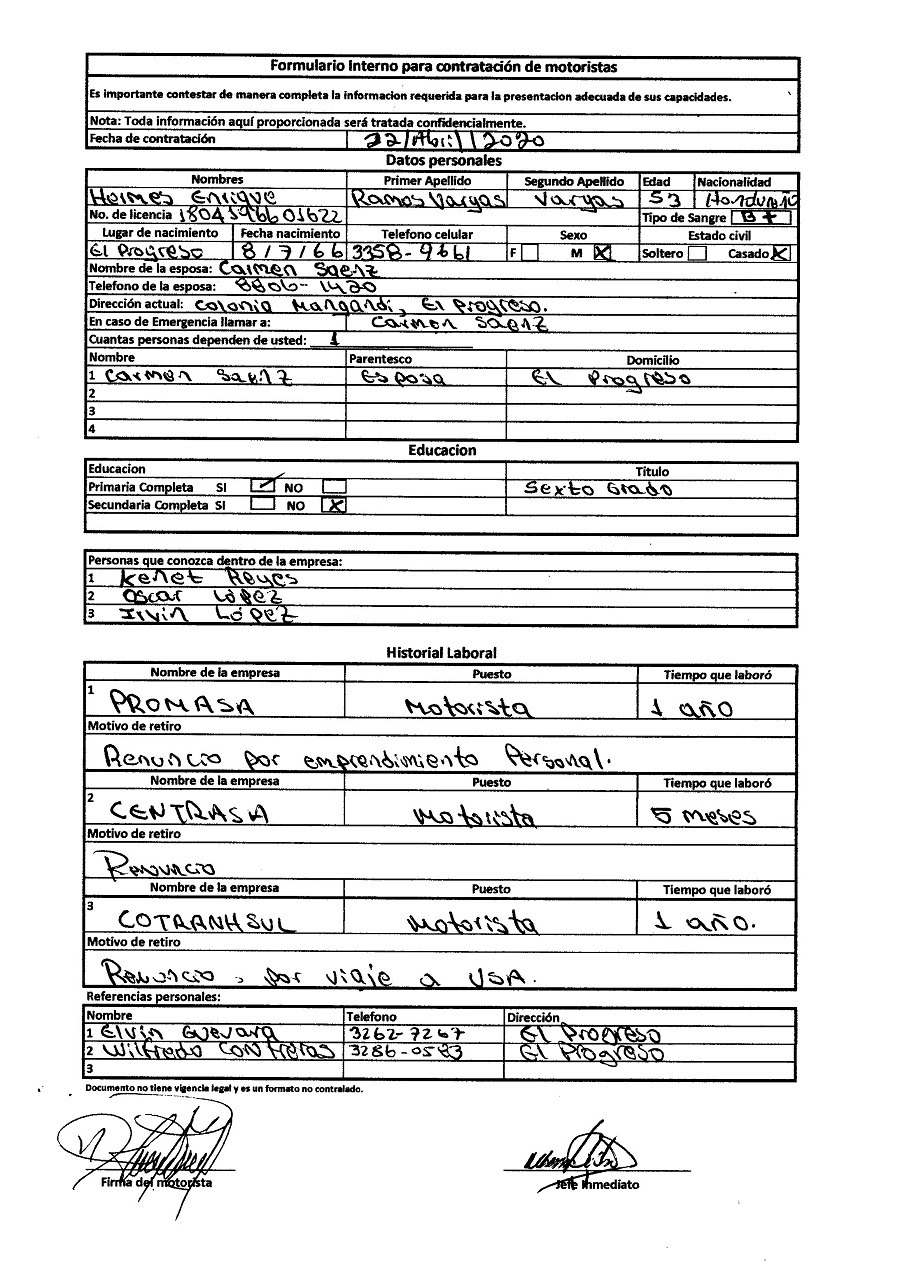 Formulario Interno para contratación de motoristas
Es importante contestar de manera completa la informacion requerida para la presentacion adecuada de sus capacidades.
Nota: Toda información aquí proporcionada será tratada confidencialmente.
Fecha de contratación 22/Abril/2020
Datos personales
Nombres Primer Apellido Segundo Apellido Edad Nacionalidad
Hermes Enrique Ramos Vargas Vargas 53 Hondureño
No. de licencia 1804596601622 Tipo de Sangre B+
Lugar de nacimiento Fecha nacimiento Telefono celular Sexo Estado civil
El Progreso 8/7/66 3358-9661 F M X Soltero Casado X
Nombre de la esposa: Carmen Saenz
Telefono de la esposa: 8806-1420
Dirección actual: Colonia Mangandi, El Progreso.
En caso de Emergencia llamar a: Carmen Saenz
Cuantas personas dependen de usted: 1
Nombre Parentesco Domicilio
1 Carmen Saenz Esposa El Progreso
2
3
4
Educacion
Educacion Título
Primaria Completa SI NO Sexto Grado
Secundaria Completa SI NO X
Personas que conozca dentro de la empresa:
1 Kenet Reyes
2 Oscar López
3 Irvin López
Historial Laboral
Nombre de la empresa Puesto Tiempo que laboró
1 PROMASA Motorista 1 año
Motivo de retiro
Renuncio por emprendimiento Personal.
Nombre de la empresa Puesto Tiempo que laboró
2 CENTRASA Motorista 5 meses
Motivo de retiro
Renuncio
Nombre de la empresa Puesto Tiempo que laboró
3 COTRANHSUL Motorista 1 año.
Motivo de retiro
Renuncio, por viaje a USA.
Referencias personales:
Nombre Telefono Dirección
1 Elvin Guevara 3262-7267 El Progreso
2 Wilfredo Contreras 3286-0583 El Progreso
3
Documento no tiene vigencia legal y es un formato no contralado.
Firma del motorista Jefe Inmediato